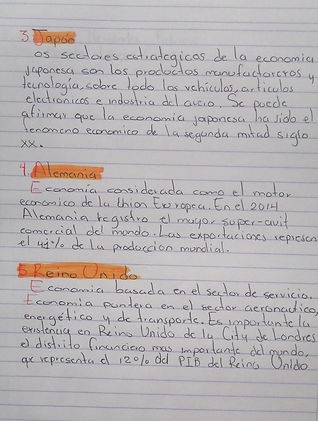 3. Japón
os sectores estrategicos de la economia
japonesa son los productos manufactoreros y
tecnologia, sobre todo los vehiculos, articulos
electronicos e industria del acero. Se puede
afirmar que la economia japonesa ha sido el
fenomeno economico de la segunda mitad siglo
XX.
4. Alemania
Economia considerada como el motor
economico de la Union Europea. En el 2014
Alemania registro el mayor super-avit
comercial del mundo. Las exportaciones represen
el 41% de la produccion mundial.
5. Reino Unido
Economia basada en el sector de servicio.
Economia puntera en el sector aeronautico,
energético y de transporte. Es importante la
existencia en Reino Unido de la City de Londres
el distrito financiero mas importante del mundo,
qe representa el 12% del PIB del Reino Unido